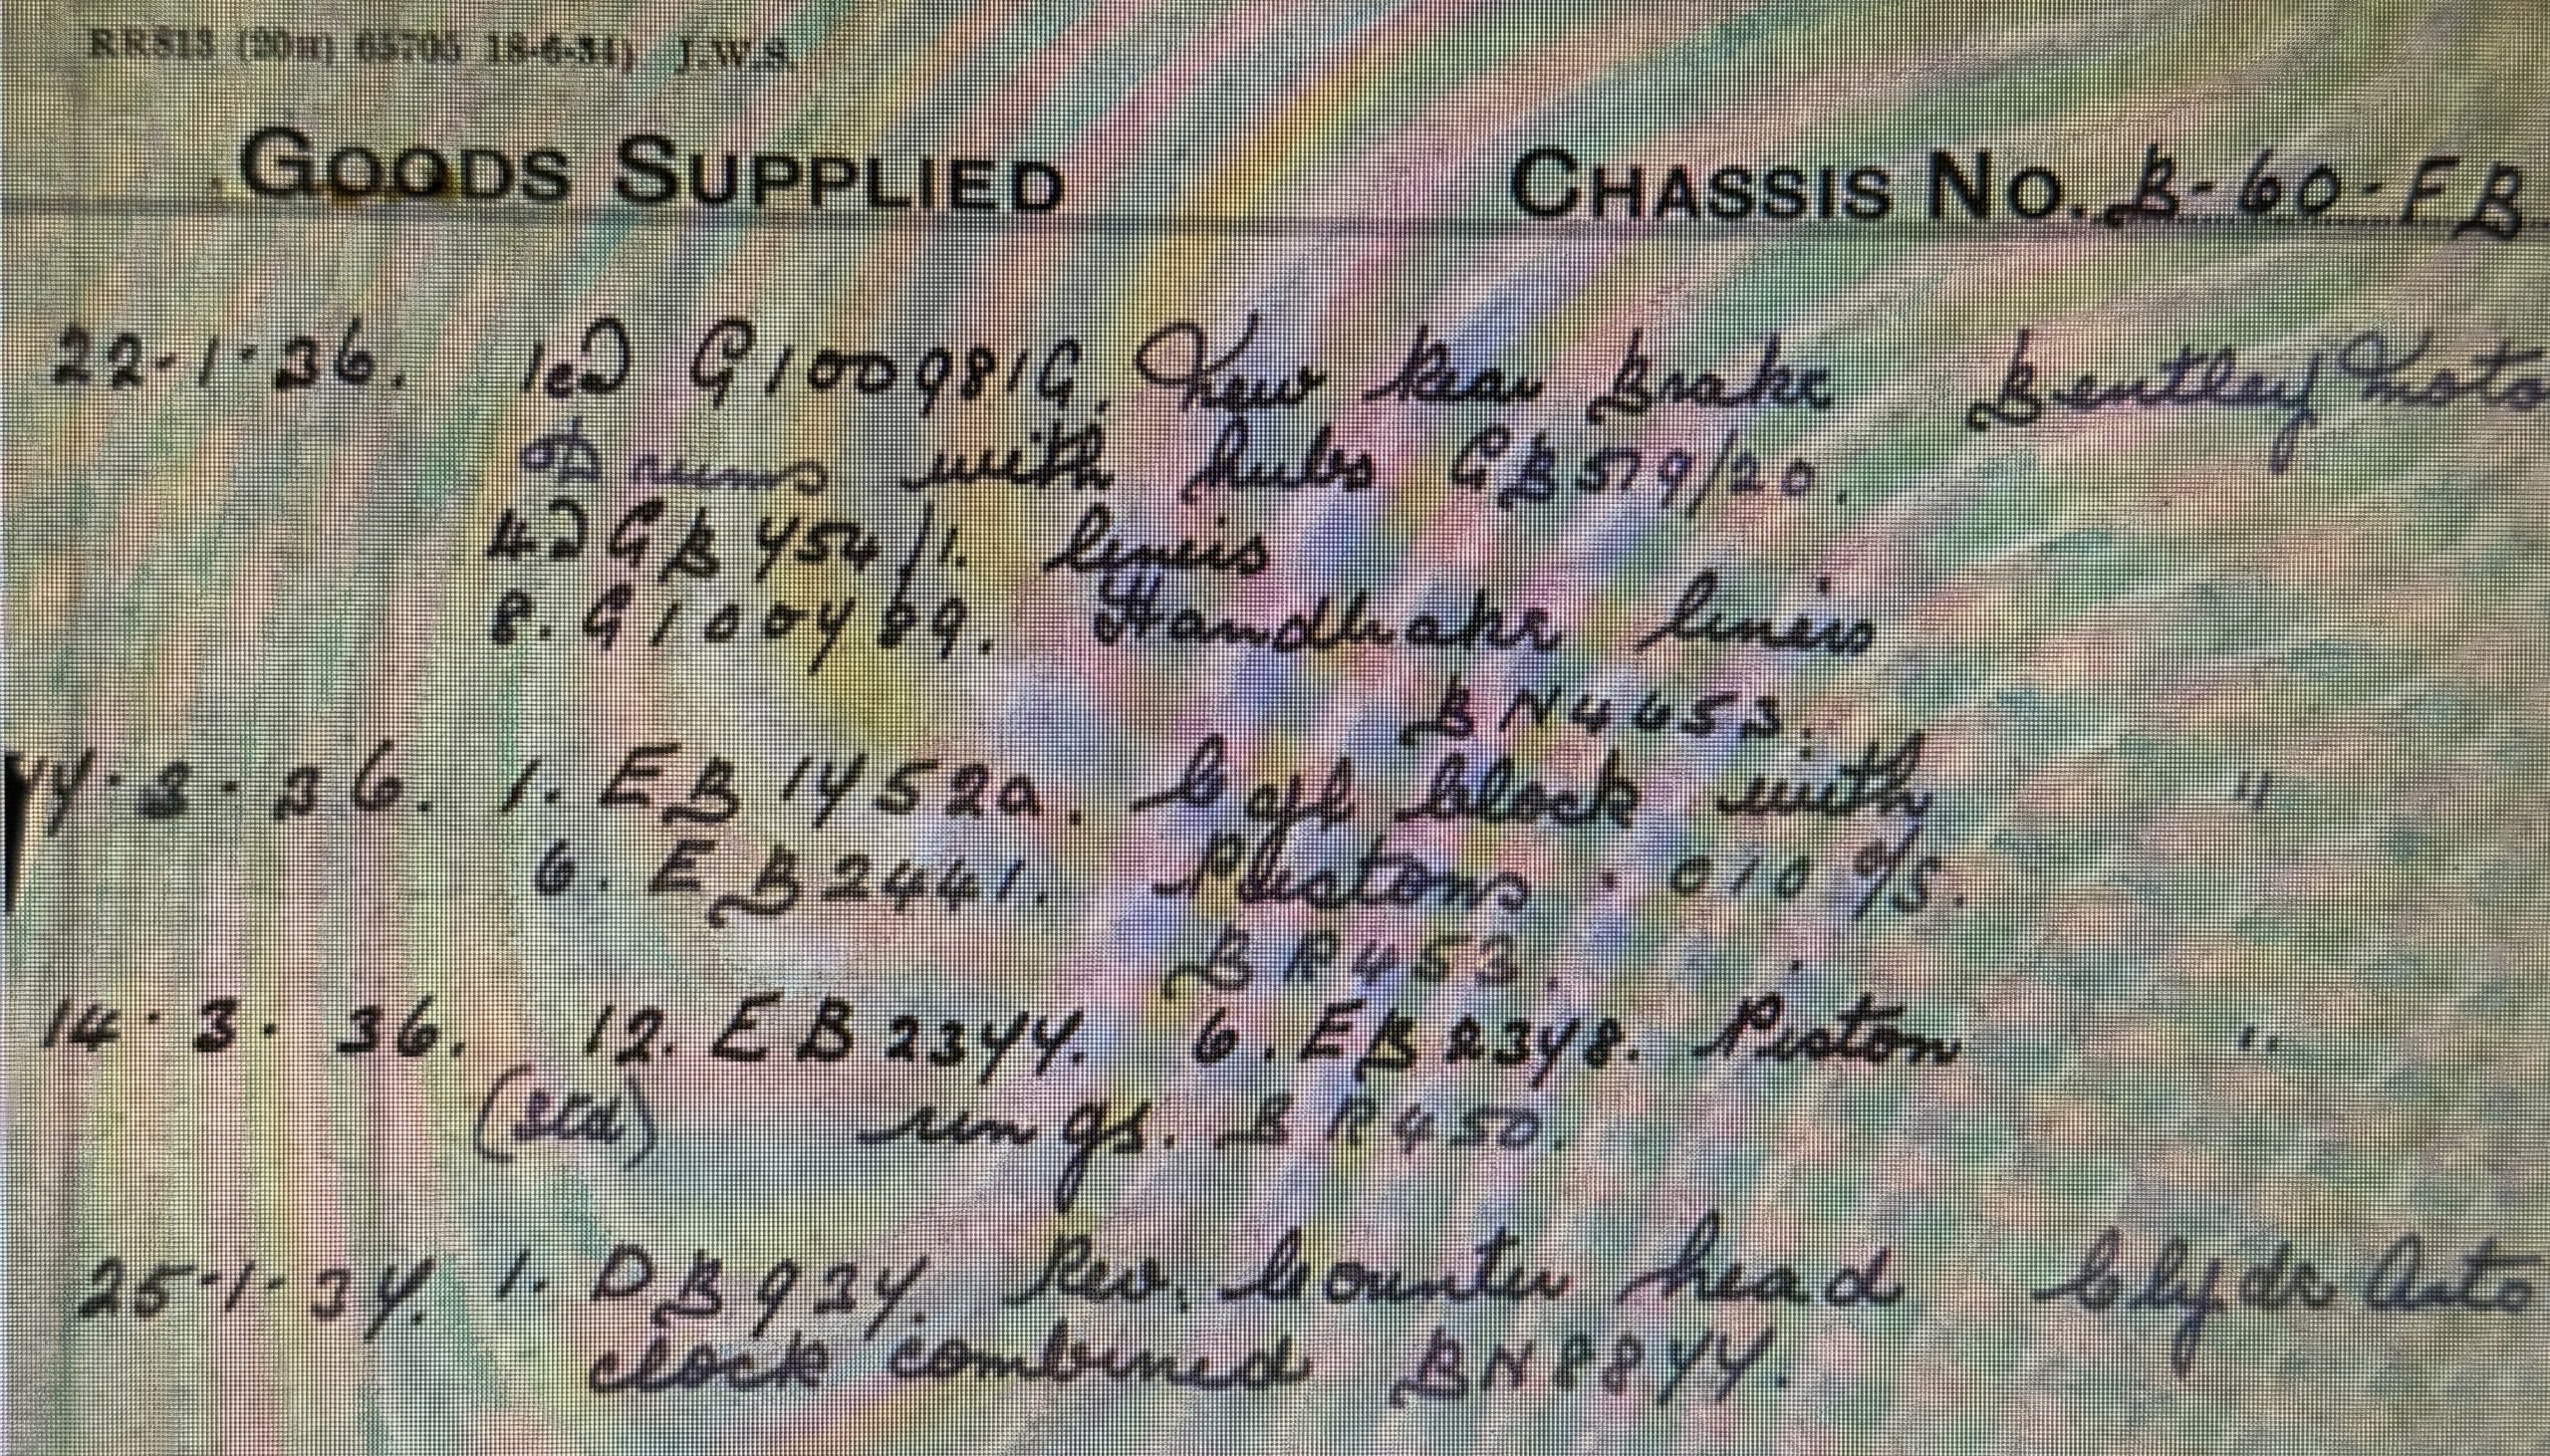 RRS13 (20m) 65705 18-6-34) J.W.S.
GOODS SUPPLIED CHASSIS NO. B-60-EB
22.1.36. G100981G. New Rear Brake Bentley Moto
Drums with hubs GB579/20.
GB754/1. liners
8. G100769. Handbrake liners
BN4653.
.3.36. 1. EB1752a. Cyl block with "
6. EB2441. Pistons .010 o/s.
BR453.
14.3.36. 12. EB2377. 6. EB2378. Piston "
(Std) rings. BR450.
25.1.37. 1. DB937. Rev. Counter head Clyde Auto
clock combined BN8877.